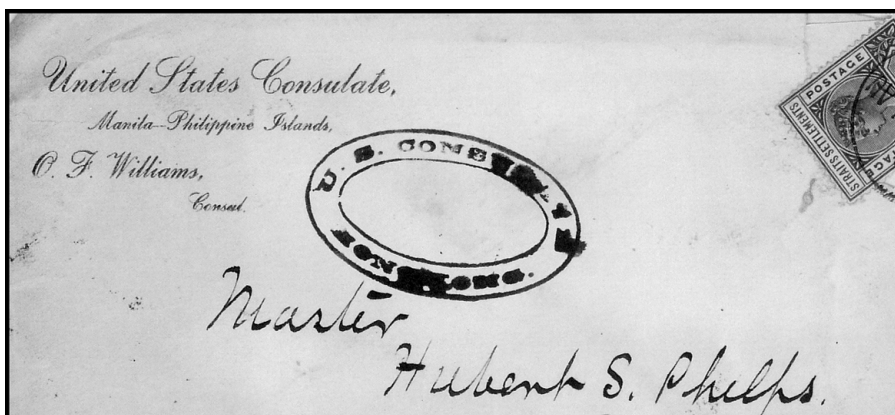 United States Consulate,
Manila--Philippine Islands,
O. F. Williams,
Consul.
U. S. CONSULATE
HONG KONG.
POSTAGE
STRAITS SETTLEMENTS
Master
Hubert S. Phelps.